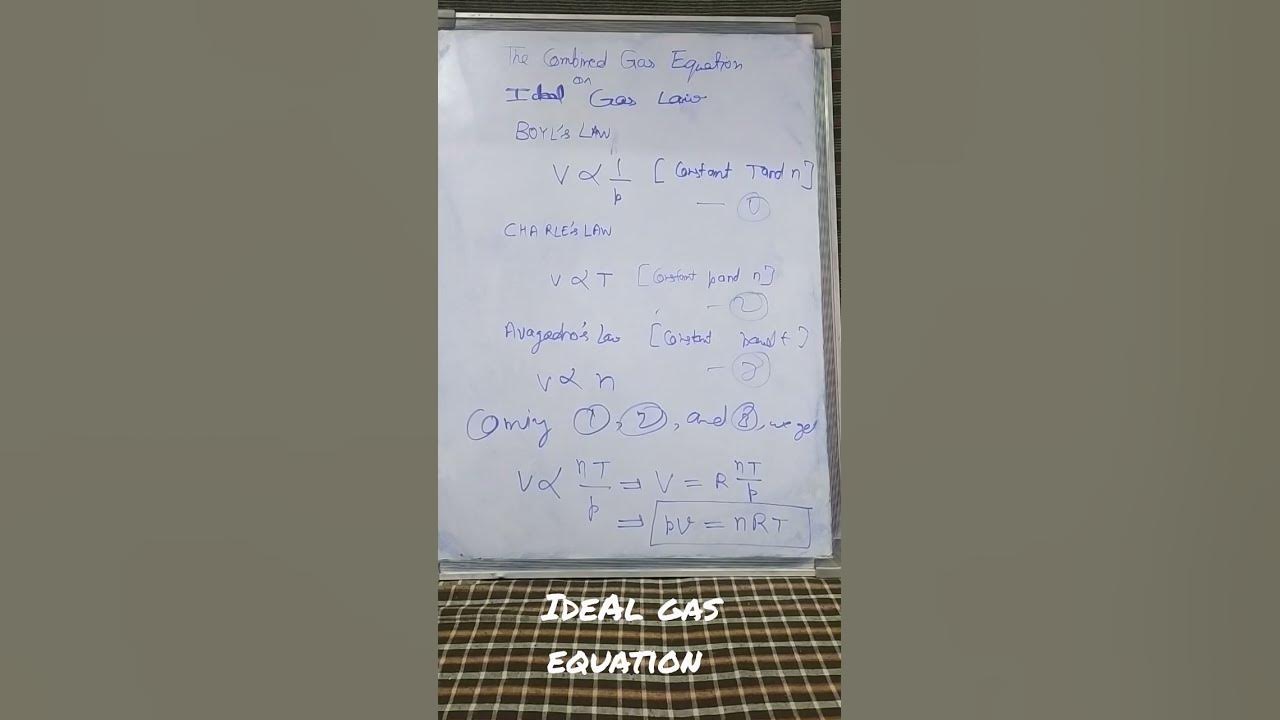 The Combined Gas Equation
on
Ideal Gas Law
BOYL's LAW
V ∝ 1/p [Constant T and n]
— ①
CHARLE's LAW
V ∝ T [Constant p and n]
— ②
Avagadro's Law [Constant p and t]
— ③
V ∝ n
①, ②, and ③, we get
V ∝ nT/p ⇒ V = R nT/p
⇒ pV = nRT
IdeAl gas
equation